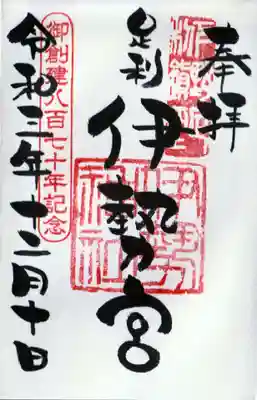 奉拝
足利
伊勢宮
伊勢神社
御創建八百七十年記念
令和三年十二月十日